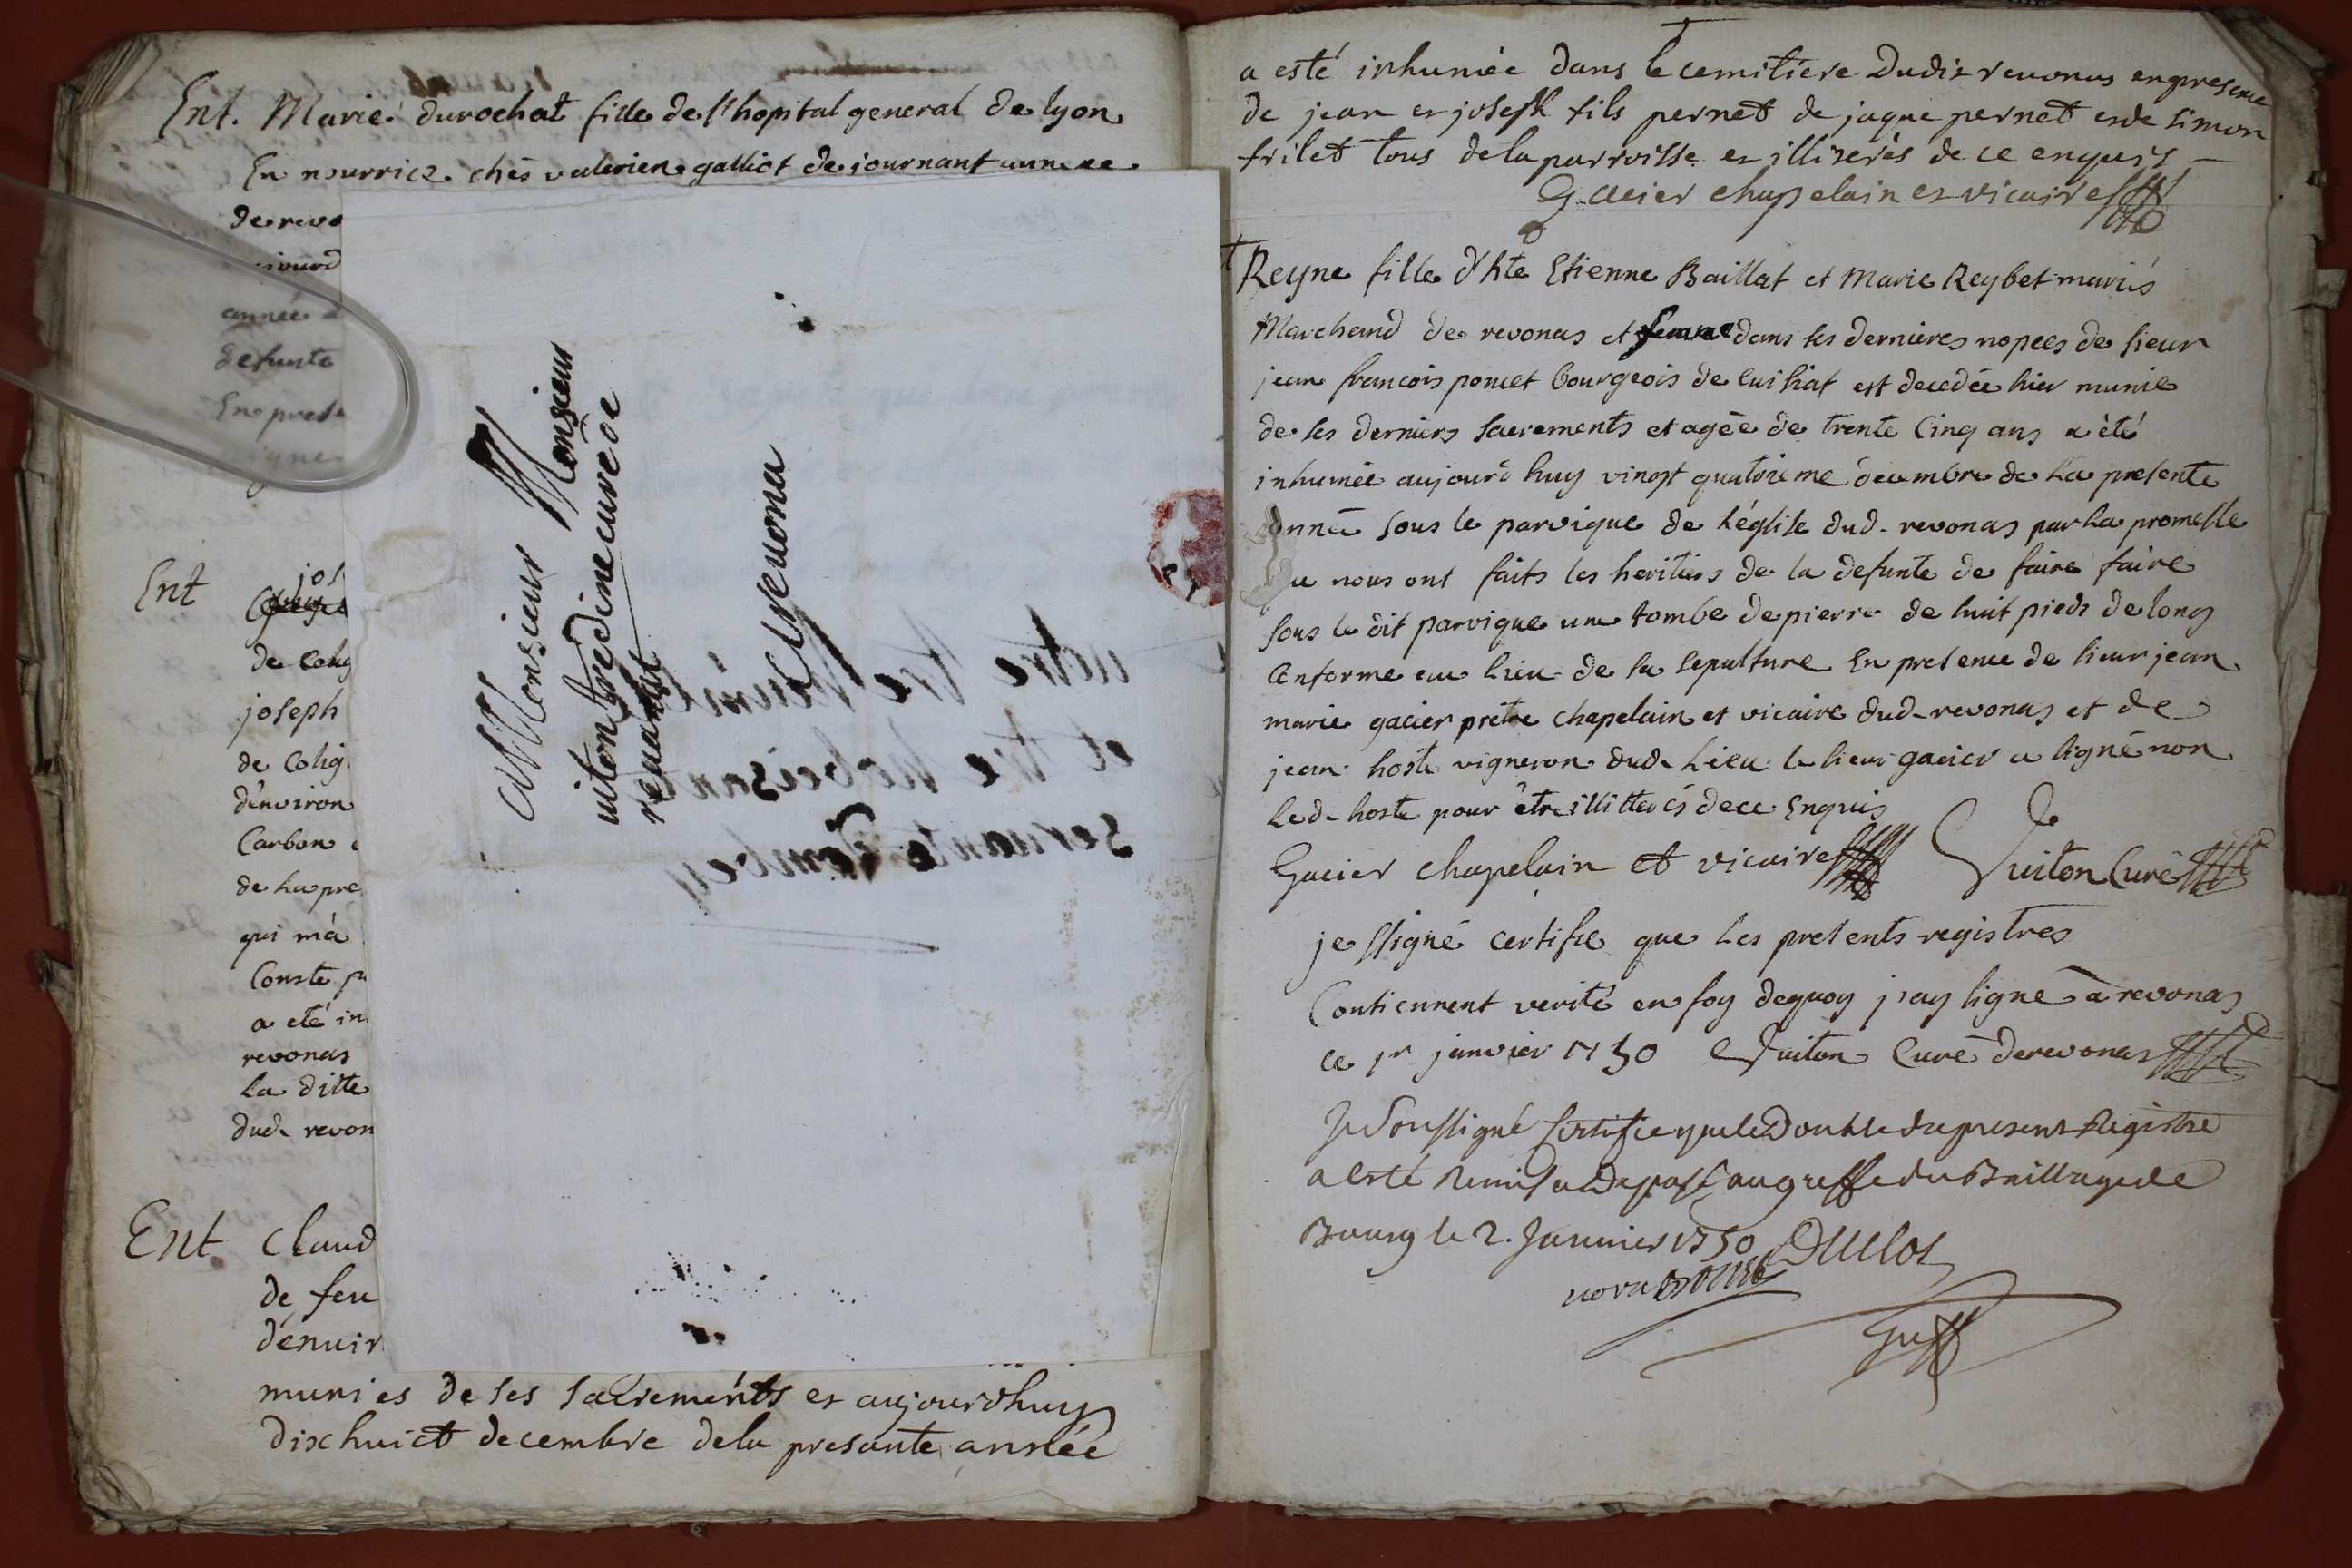 Ent. Marie durochat fille de l'hopital general de lyon
En nourrice chés valerien galliot de journant annexe
de revo
année
defunte
En prese
Ent jos
de Colig
joseph
de Colig
d'environ
Carbon
de la pre
qui m'a
Conste p
a eté in
revonas
la ditte
dud. revon
Ent Claud
de feu
d'enuir
munies de ses sacreménts et aujourdhuy
dixhuict decembre dela presante année
a Monsieur Monsieur
uiton tre dine curé de
reuanas
a Reuona
uotre tre humble
et tre hobeisante
seruante
a esté inhumée dans le cemitiere dudit reuonas en presence
de jean et joseph fils pernet de jaque pernet et de simon
frilet tous dela parroisse et illiterés de ce enquis
Gacier chapelain et vicaire
Reyne fille d'hte Etienne Baillat et Marie Reybet mariés
Marchand de revonas et femme dans ses dernieres nopces de sieur
jean francois poncet bourgeois de Cuisiat est decedée hier munie
de ses derniers sacrements et agée de trente Cinq ans a été
inhumée aujourd'huy vingt quatrieme decembre de la presente
année sous le parvique de l'église dud. revonas par la promesse
que nous ont faits les heritiers de la defunte de faire faire
sous le dit parvique une tombe de pierre de huit pieds de long
Conforme au lieu de sa sepulture En presence de sieur jean
marie gacier pretre chapelain et vicaire dud. revonas et de
jean hoste vigneron dud. Lieu le sieur gacier a signé non
led. hoste pour être illitterés de ce Enquis
Gacier chapelain et vicaire Vuiton Curé
je ssigné certifie que les presents registres
Contiennent verité en foy dequoy j'ay signé à revonas
ce 1r janvier 1750 Vuiton Curé de revonas
Je soussigné Certifie que le Double du present Registre
a esté Remis et Deposé au greffe du Baillage de
Bourg le 2. Januier 1750 Duclos
Greff